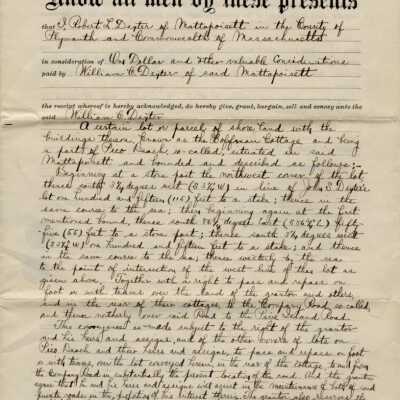 Know all men by these presents
that I Robert L Dexter of Mattapoisett in the County of
Plymouth and Commonwealth of Massachusetts
in consideration of One Dollar and other valuable Considerations
paid by William C Dexter of said Mattapoisett
the receipt whereof is hereby acknowledged, do hereby give, grant, bargain, sell and convey unto the
said William C. Dexter
A certain lot or parcel of shore land with the
buildings thereon known as the Cottage and being
a part of Pico Beach, so-called, situated in said
Mattapoisett and bounded and described as follows:-
Beginning at a stone post the northwest corner of the lot
thence south degrees west in line of John S. Dexter's
lot one hundred and fifteen (115) feet to a stake; thence in the
same course to the sea; then beginning again at the first
mentioned bound, thence south degrees east fifty-
five (55) feet to a stone post; thence south degrees west
one hundred and fifteen feet to a stake; and thence
in the same course to the sea; thence westerly by the sea
to the point of intersection of the west line of this lot as
given above. Together with a right to pass and repass on
foot or with teams over the land of the grantor and others
and in the rear of their cottages to the Company Road, so called,
and thence northerly over said Road to the Island Road.
This conveyance is made subject to the right of the grantor
and his heirs and assigns, and of the other owners of lots on
Pico Beach and their heirs and assigns, to pass and repass on foot
or with teams, over the lot conveyed herein, in the rear of the cottage, to and from
the Company Road in substantially the present location of the road. And the grantee
agree that he and his heirs and assigns will assist in the maintenance of
grades in the of his interest therein. The grantor also reserves the